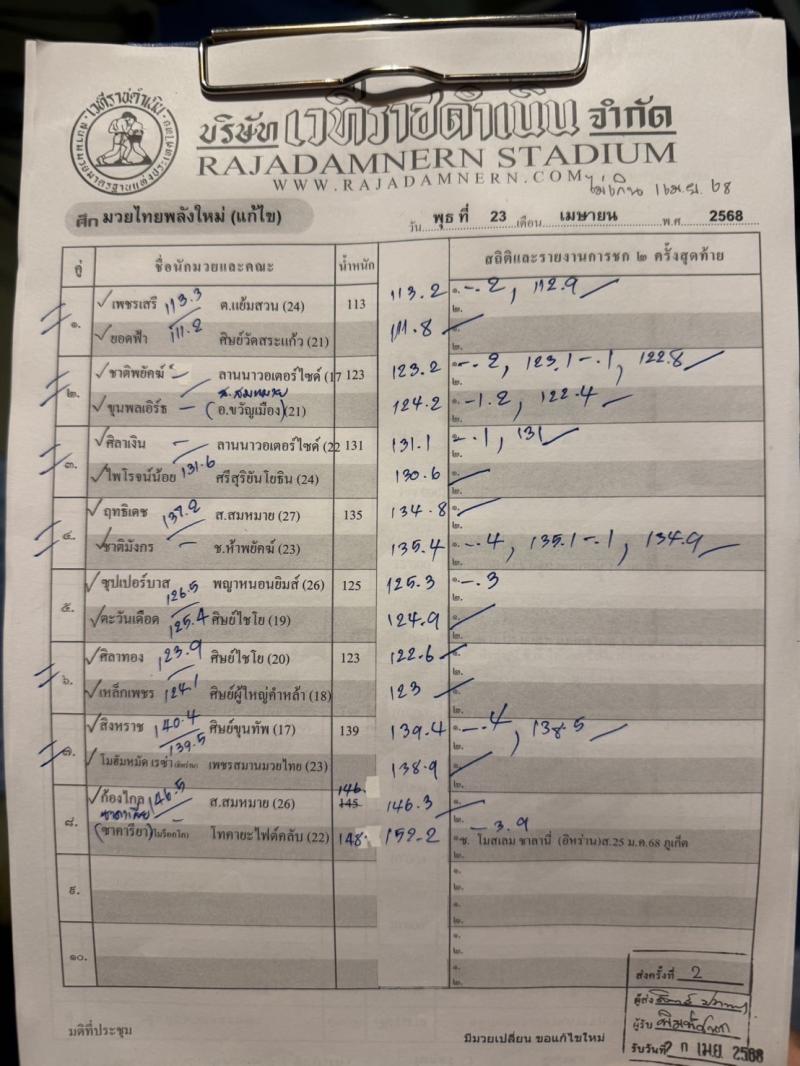 เวทีราชดำเนิน
บริษัท เวทีราชดำเนิน จำกัด
RAJADAMNERN STADIUM
WWW.RAJADAMNERN.COM
ศึก มวยไทยพลังใหม่ (แก้ไข)
วัน พุธ ที่ 23 เดือน เมษายน พ.ศ 2568
คู่ ชื่อนักมวยและคณะ น้ำหนัก สถิติและรายงานการชก ๒ ครั้งสุดท้าย
๑. เพชรเสรี 113.3 ต.แย้มสวน (24) 113 113.2 ๑. -.2, 112.9
๒.
ยอดฟ้า 111.2 ศิษย์วัดสระแก้ว (21) 111.8 ๑.
๒.
๒. ชาติพยัคฆ์ ลานนาวอเตอร์ไซด์ (17 123 123.2 ๑. -.2, 123.1 -.1, 122.8
๒.
ส.สมหมาย
ขุนพลเอิร์ธ (อ.ขวัญเมือง) (21) 124.2 ๑. -1.2, 122.4
๒.
๓. ศิลาเงิน ลานนาวอเตอร์ไซด์ (22 131 131.1 -.1, 131
๒.
ไพโรจน์น้อย 131.6 ศรีสุริยันโยธิน (24) 130.6 ๑.
๒.
๔. ฤทธิเดช 137.2 ส.สมหมาย (27) 135 134.8 ๑.
๒.
ชาติมังกร ช.ห้าพยัคฆ์ (23) 135.4 ๑. -.4, 135.1 -.1, 134.9
๒.
๕. ซุปเปอร์บาส 126.5 พญาหนอนยิมส์ (26) 125 125.3 ๑. -.3
๒.
ตะวันเดือด 125.4 ศิษย์ไชโย (19) 124.9 ๑.
๒.
๖. ศิลาทอง 123.9 ศิษย์ไชโย (20) 123 122.6 ๑.
๒.
เหล็กเพชร 124.1 ศิษย์ผู้ใหญ่คำหล้า (18) 123 ๑.
๒.
๗. สิงหราช 140.4 ศิษย์ขุนทัพ (17) 139 139.4 ๑. -.4, 138.5
๒.
โมฮัมหมัด เรซ่า (อิหร่าน) 139.5 เพชรสมานมวยไทย (23) 138.9 ๑.
๒.
๘. ก้องไกล 146.5 ส.สมหมาย (26) 146. 145 146.3 ๑.
๒. -3.9
(ซาคารียา) โมร็อกโก โทคายะไฟต์คลับ (22) 148. 152.2 ๑ช. โมสเลม ชาลานี่ (อิหร่าน)ส.25 ม.ค.68 ภูเก็ต
๒.
๙. ๑.
๒.
๑.
๒.
๑๐. ๑.
๒.
๑.
๒.
มติที่ประชุม
มีมวยเปลี่ยน ขอแก้ไขใหม่
ส่งครั้งที่ 2
ผู้ส่ง
ผู้รับ
รับวันที่ เม.ย. 2568